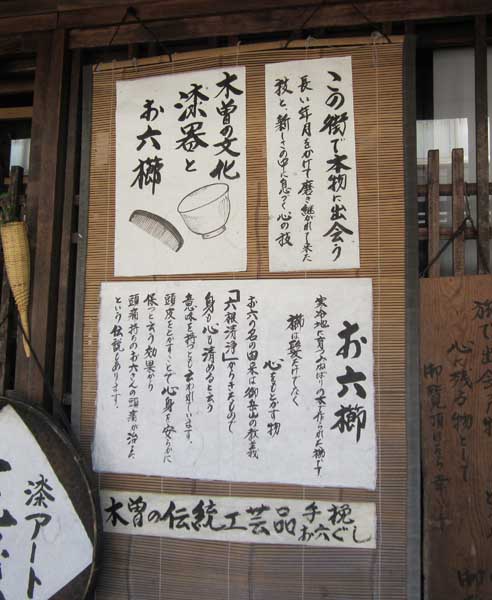 この街で本物に出会う
長い年月をかけて磨き継がれて来た
技と、新しさの中に息づく心の技
木曽の文化
漆器と
お六櫛
お六櫛
寒冷地に育つみねばりの木で作られた櫛です
櫛は髪だけでなく
心をもとかす物
お六の名の由来は御岳山の教義
「六根清浄」からきたもので
身も心も清めると云う
意味を持つとも云われています。
頭皮をとかすことで心身を安らかに
保つと云う効果から
頭痛持ちのお六さんの頭痛が治った
という伝説もあります。
木曽の伝統工芸品
手挽
お六ぐし
旅で出会った物
心に残る物として
漆アート